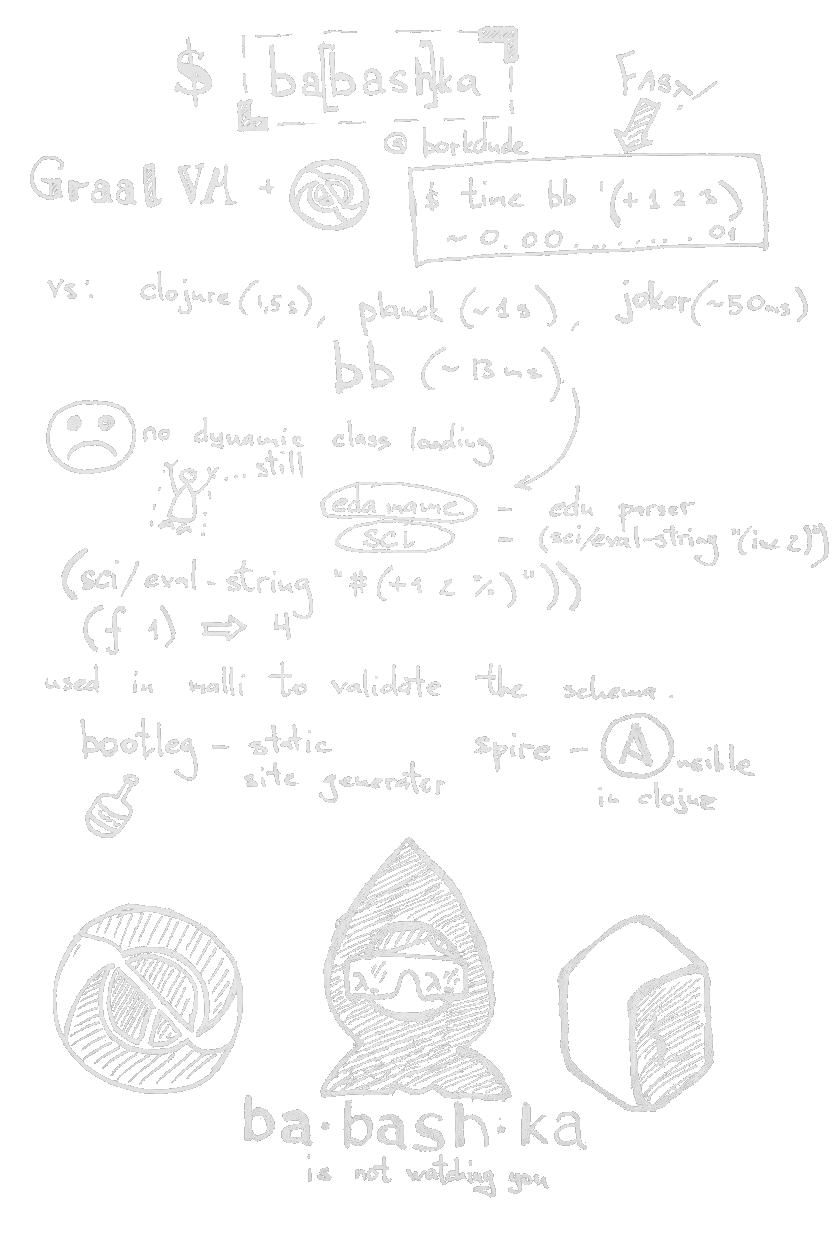 $ ba[bash]ka
FAST!
@ borkdude
Graal VM +
$ time bb '(+ 1 2 3)
~ 0.00........01
vs: clojure (1,5s), planck (~1s), joker (~50ms)
bb (~13ms)
no dynamic class loading
...still
edamame - edn parser
SCI - (sci/eval-string "(inc 2)")
(sci/eval-string "#(+1 2 %)"))
(f 1) ⇒ 4
used in malli to validate the schema.
bootleg - static
site generater
spire - Ansible
in clojure
λ λ
ba·bash·ka
is not watching you